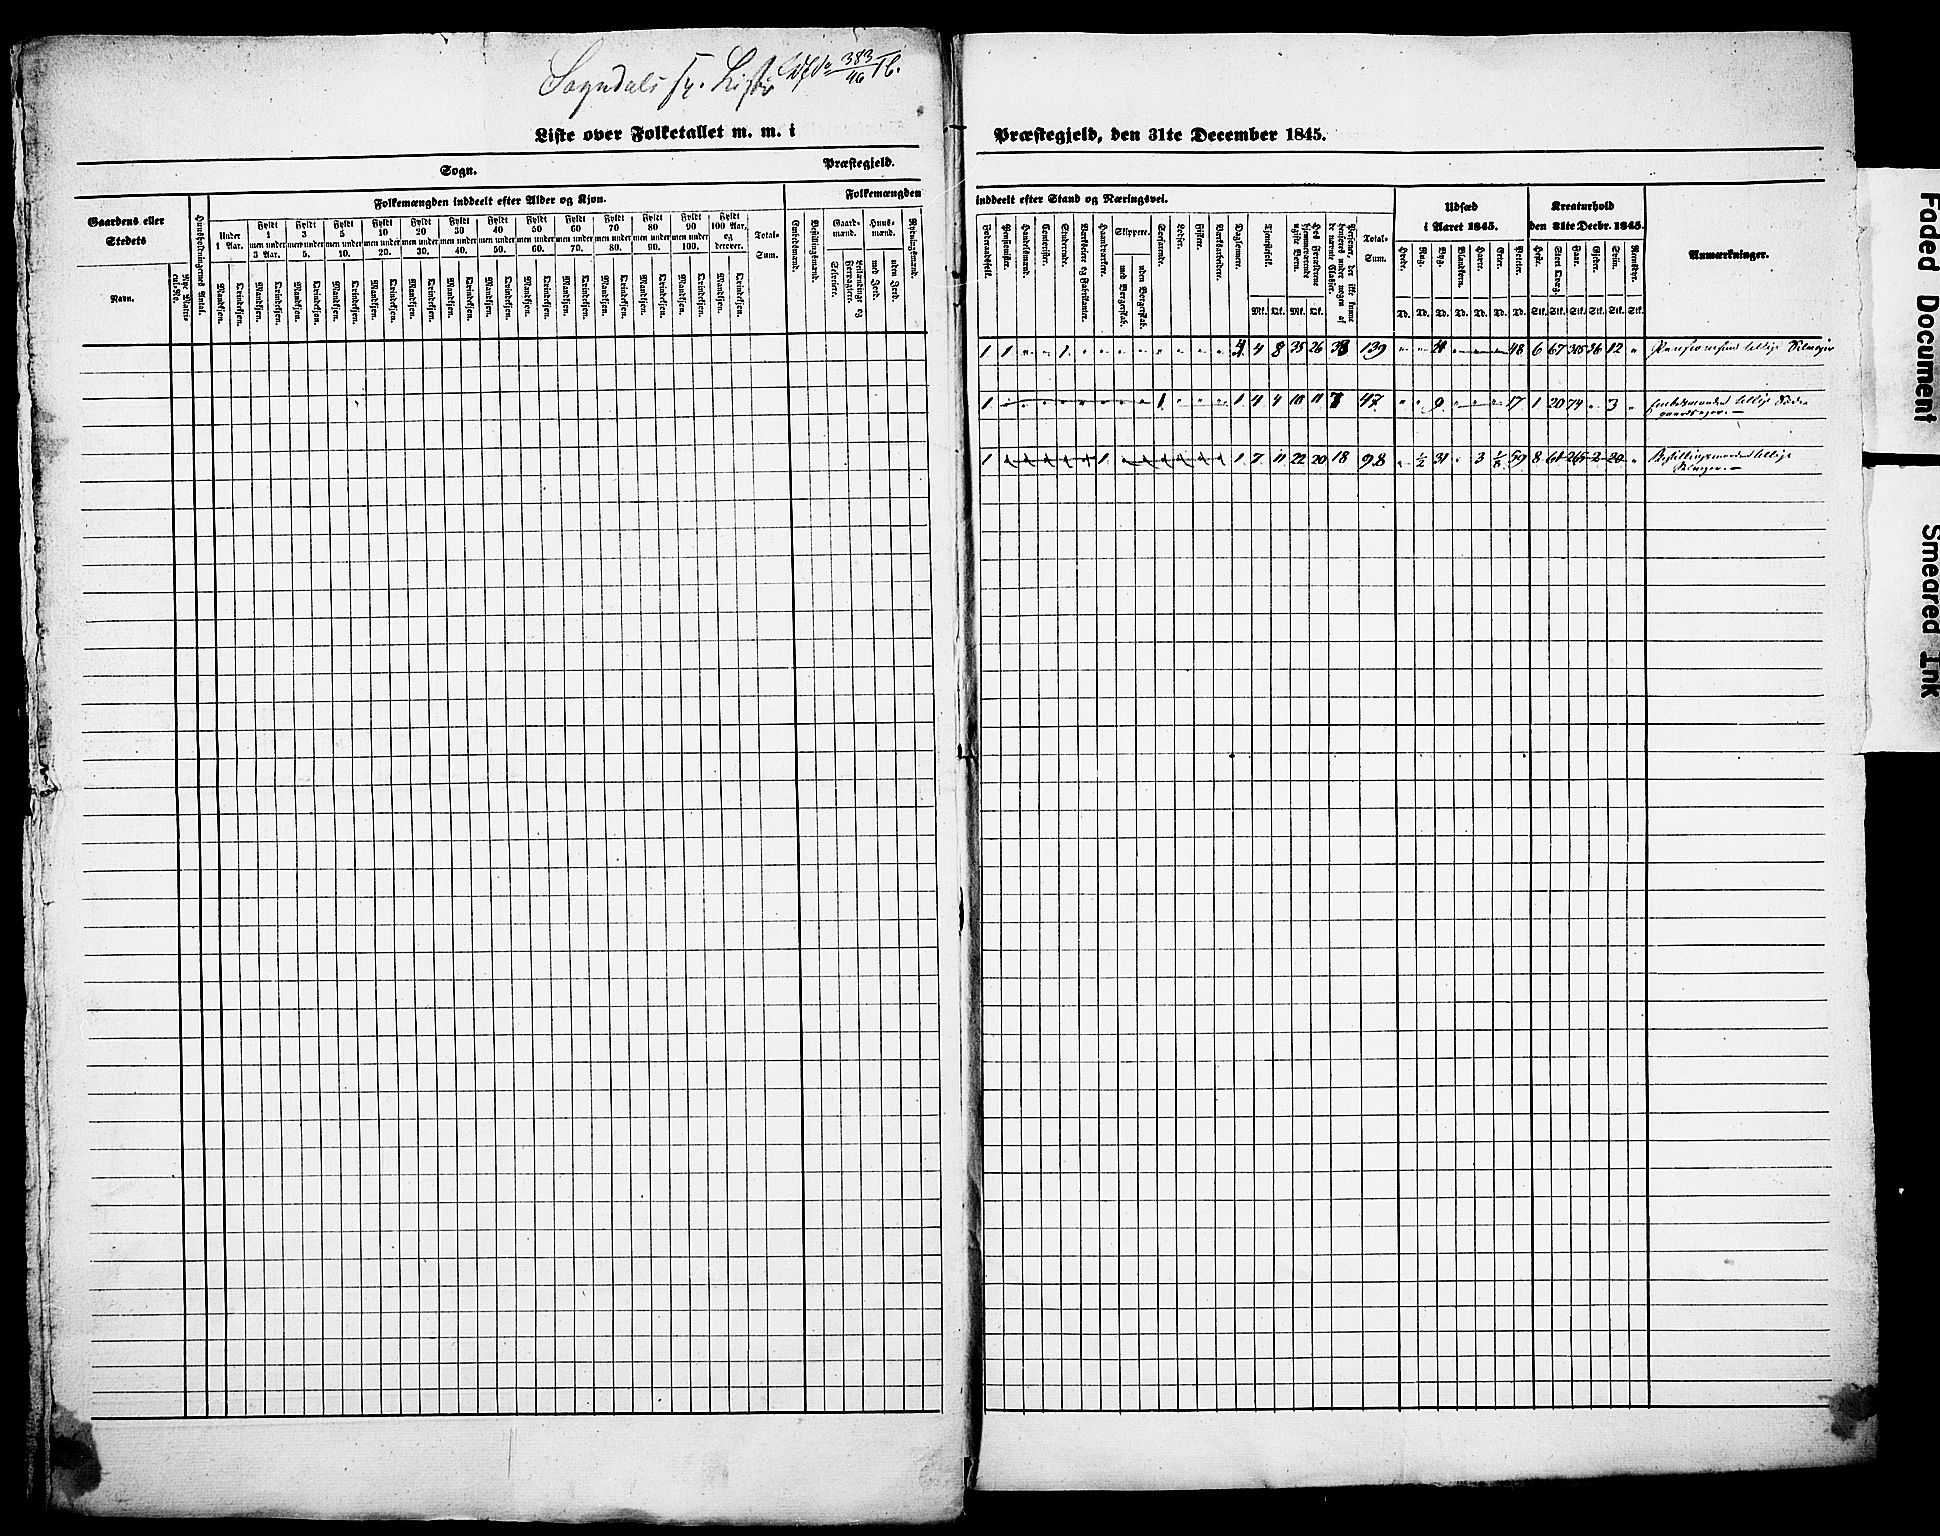 Sogndals
383
46
Liste over Folketallet m. m. i
Sogn.
Præstegjeld.
Gaardens eller
Stedets
Navn.
Nye Matricul-No.
Huusholdningernes Antal.
Folkemængden inddeelt efter Alder og Kjøn.
Under 1 Aar.
Fyldt 1 men under 3 Aar.
Fyldt 3 men under 5.
Fyldt 5 men under 10.
Fyldt 10 men under 20.
Fyldt 20 men under 30.
Fyldt 30 men under 40.
Fyldt 40 men under 50.
Fyldt 50 men under 60.
Fyldt 60 men under 70.
Fyldt 70 men under 80.
Fyldt 80 men under 90.
Fyldt 90 men under 100.
Fyldt 100 Aar, og derover.
Total-Sum.
Mandkjøn. Qvindekjøn. Mandkjøn. Qvindekjøn. Mandkjøn. Qvindekjøn. Mandkjøn. Qvindekjøn. Mandkjøn. Qvindekjøn. Mandkjøn. Qvindekjøn. Mandkjøn. Qvindekjøn. Mandkjøn. Qvindekjøn. Mandkjøn. Qvindekjøn. Mandkjøn. Qvindekjøn. Mandkjøn. Qvindekjøn. Mandkjøn. Qvindekjøn. Mandkjøn. Qvindekjøn. Mandkjøn. Qvindekjøn.
Folkemængden
Embedsmænd.
Bestillingsmænd.
Gaardmænd.
Selveiere.
Leilændinge og Forpagtere.
Huusmænd.
med Jord.
uden Jord.
Rydningsmænd.
Præstegjeld, den 31te December 1845.
inddeelt efter Stand og Næringsvei.
Føderaadsfolk.
Pensionister.
Handelsmænd.
Contorister.
Studerende.
Værkseiere og Fabrikanter.
Haandværkere.
Skippere.
med Borgerskab.
uden Borgerskab.
Søefarende.
Lodser.
Fiskere.
Værksarbeidere.
Daglønnere.
Tjenestefolk.
Mk. Qk.
Hos Forældrene hjemmeværende ugifte Børn.
Mk. Qk.
Personer, der ikke kunne henføres under nogen af de nævnte Classer.
Total-Sum.
Udsæd
i Aaret 1845.
Hvede. Rug. Byg. Blandkorn. Havre. Erter. Poteter.
Td. Td. Td. Td. Td. Td. Td.
Kreaturhold
den 31te Decbr. 1845.
Heste. Stort Qvæg. Faar. Gjeder. Sviin. Rensdyr.
Stk. Stk. Stk. Stk. Stk. Stk.
Anmærkninger.
1 1 " " 1 " " " " " " " " 4 4 8 35 26 38 139 " " " " " " 48 6 67 36 12 " tillige
1 " " " " " " " " 1 " " " 1 4 4 10 11 7 47 " " 9 " " " 17 1 20 74 " 3 " tillige
1 1 1 7 11 22 20 18 98 " 1/2 31 " 3 1/8 59 8 61 265 2 20 " tillige
Faded Document
Smeared Ink